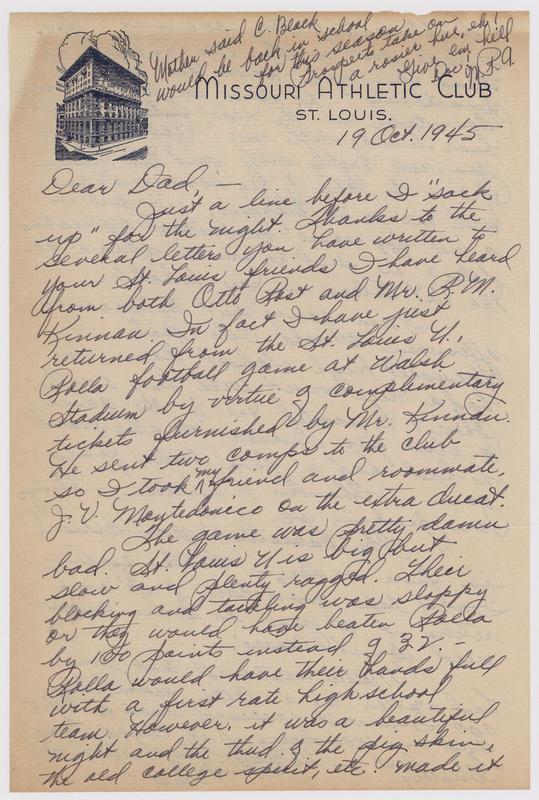 Mother said C. Black
would be back in school
for this season.
Prospects take on
a rosier hue, eh!
Give 'em hell
in
P.A.
MISSOURI ATHLETIC CLUB
ST. LOUIS.
19 Oct. 1945
Dear Dad, —
Just a line before I "sack
up" for the night. Thanks to the
several letters you have written to
your St. Louis friends I have heard
from both Otto Post and Mr. R.M.
Kinnan. In fact I have just
returned from the St. Louis U.,
Rolla football game at Walsh
Stadium by virtue of complimentary
tickets furnished by Mr. Kinnan.
He sent two comps to the club
so I took my friend and roommate,
J.V. Montedonico on the extra ducat.
The game was pretty damn
bad. St. Louis U is big but
slow and plenty ragged. Their
blocking and tackling was sloppy
or they would have beaten Rolla
by 100 points instead of 32. —
Rolla would have their hands full
with a first rate high school
team. However, it was a beautiful
night and the thud of the pig skin,
the old college spirit, etc. made it